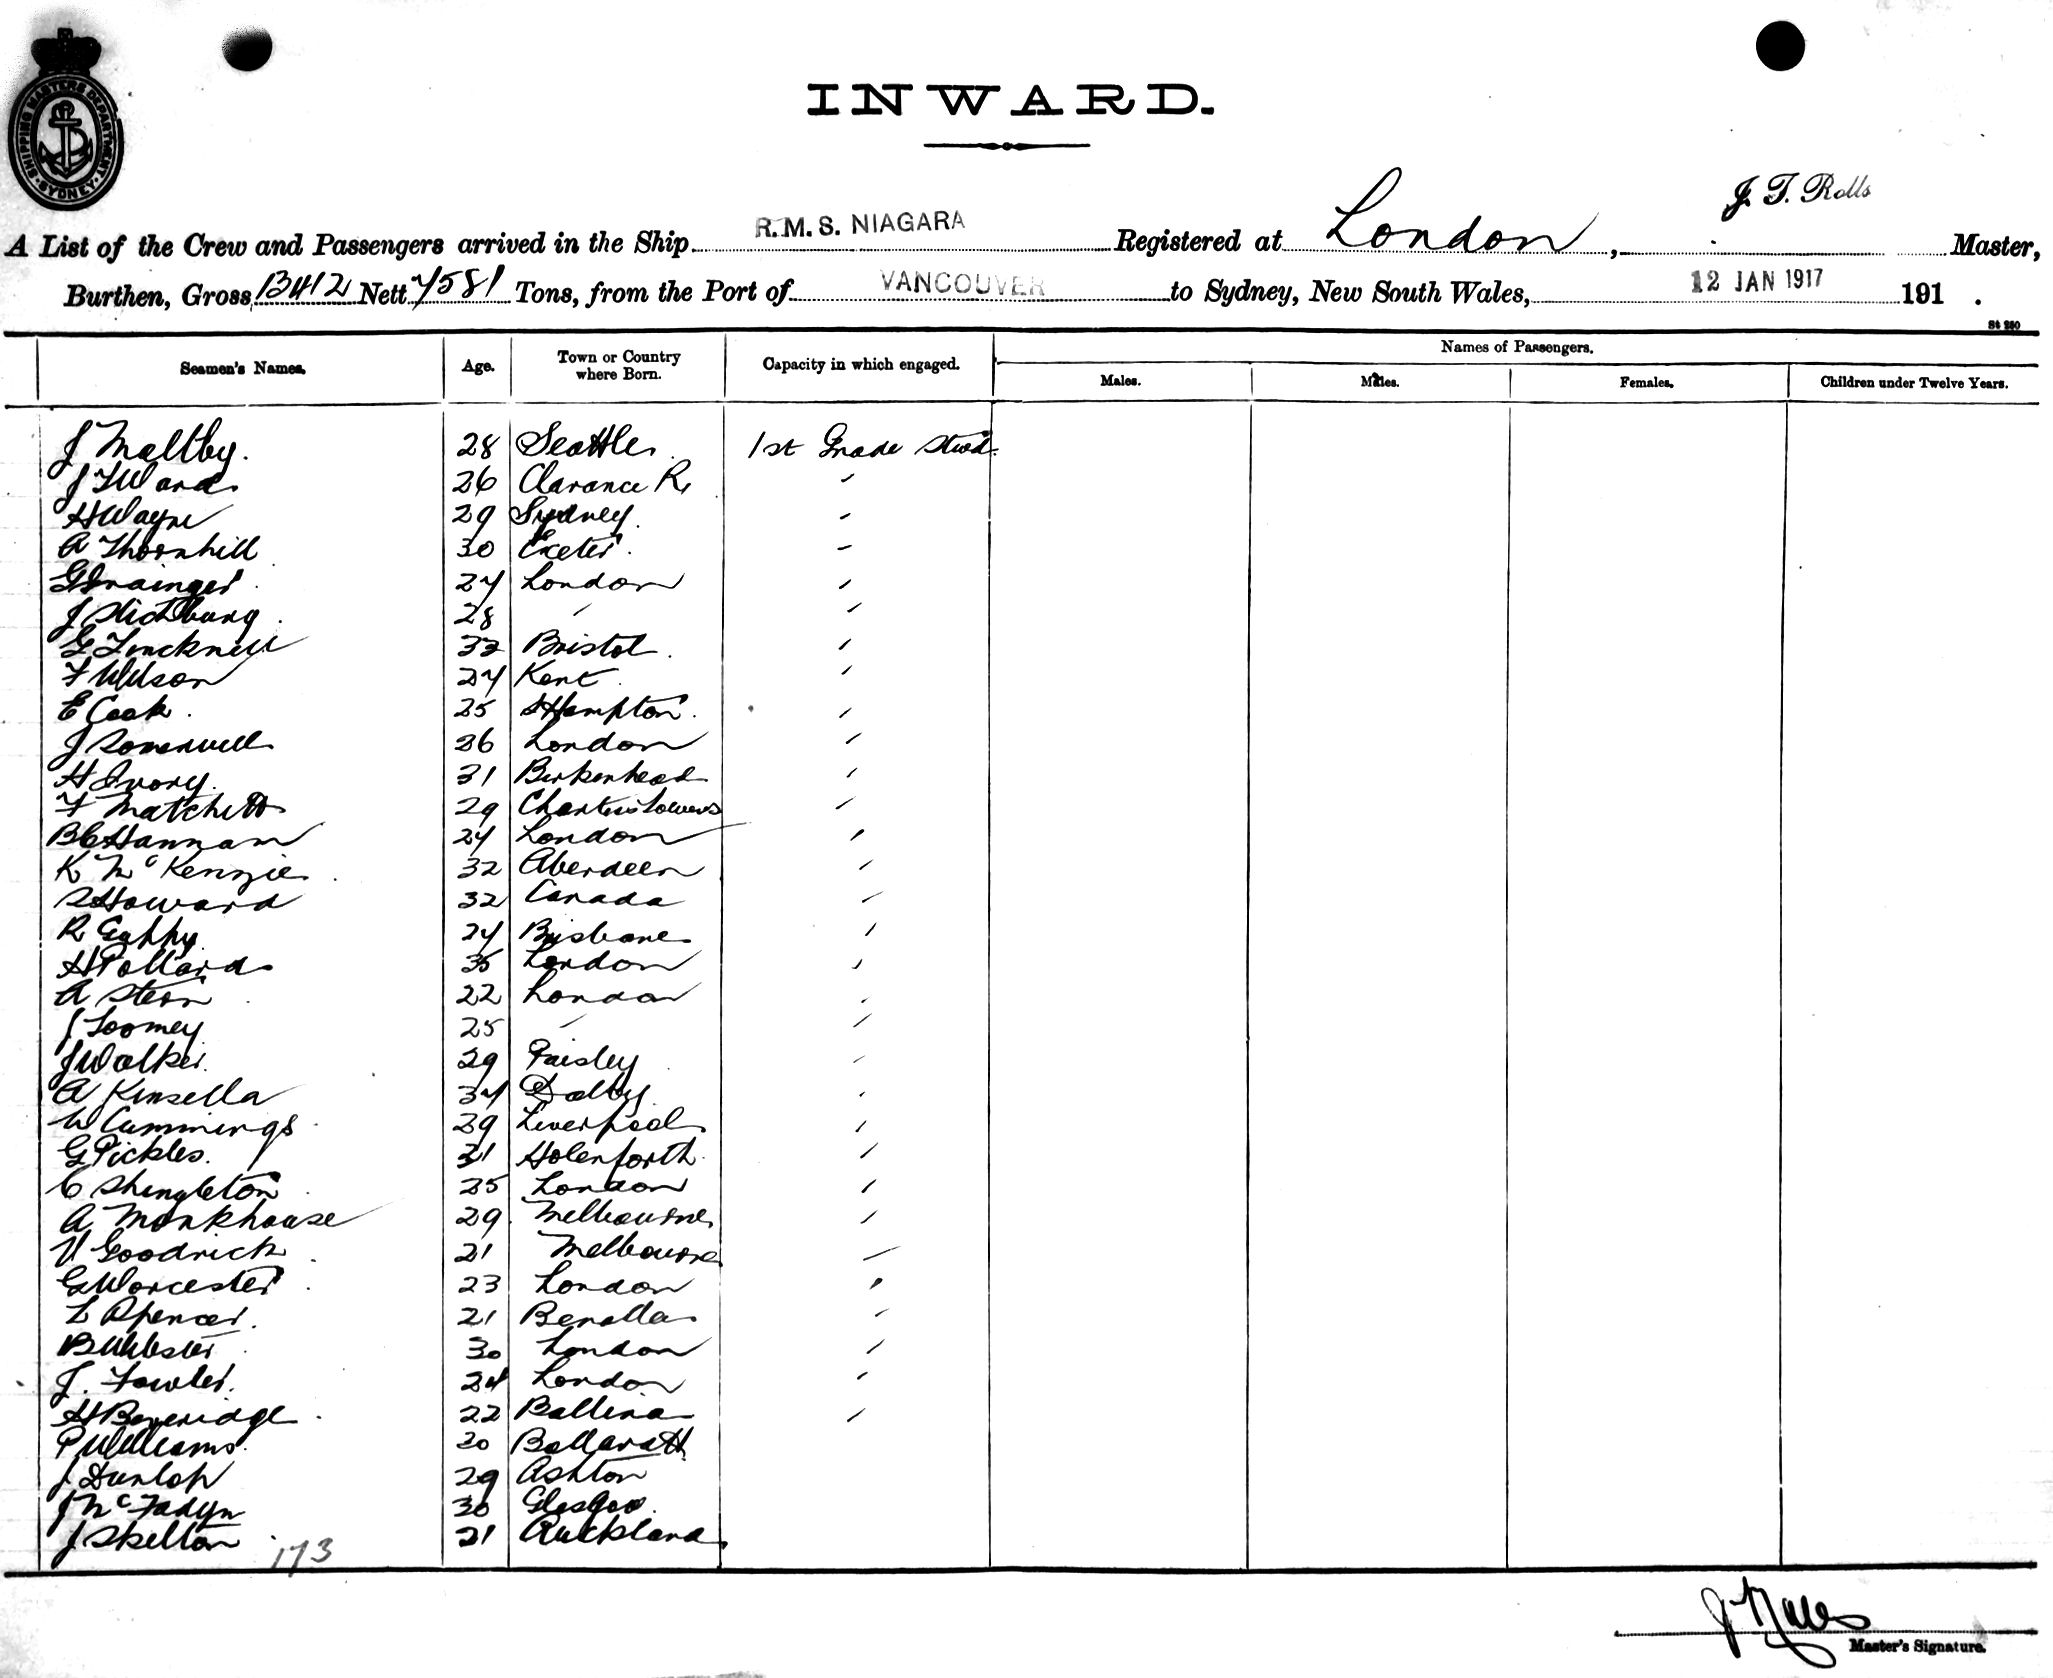 SHIPPING MASTERS DEPARTMENT SYDNEY
INWARD.
J. T. Rolls
A List of the Crew and Passengers arrived in the Ship R.M.S. NIAGARA Registered at London, Master,
Burthen, Gross 13412 Nett 7581 Tons, from the Port of VANCOUVER to Sydney, New South Wales, 12 JAN 1917 191 .
St 280
Seamen's Names. Age. Town or Country where Born. Capacity in which engaged. Names of Passengers.
Males. Males. Females. Children under Twelve Years.
J Maltby. 28 Seattle 1st Grade Stwd.
J F Ward 26 Clarance R. "
H Wayne 29 Sydney "
A Thornhill 30 Exeter "
G Grainger 27 London "
J 28 " "
G 33 Bristol "
F Wilson 27 Kent "
E Cook 25 SHampton "
J Somerwell 26 London "
H Ivory 31 Birkenhead "
F Matchett 29 Charters Towers "
B C Hannam 24 London "
K McKenzie 32 Aberdeen "
S Howard 32 Canada "
R Gahhy 24 Brisbane "
H Pollard 35 London "
A Stern 22 London "
J Toomey 25 " "
J Walker 29 Paisley "
A Kinsella 34 Dalby "
W Cummings 29 Liverpool "
G Pickles. 31 Holenforth "
C Shingleton 25 London "
A Monkhouse 29 Melbourne "
V Goodrick 21 Melbourne "
G Worcester 23 London "
L Spencer. 21 Benalla "
B Webster 30 London "
J. Fowler. 24 London "
H Beveridge 22 Ballina "
P Williams 20 Ballaratt
J Dunlop 29 Ashton
J McFadyn 30 Glasgow
J Skelton 21 Auckland
173
J T Rolls
Master's Signature.